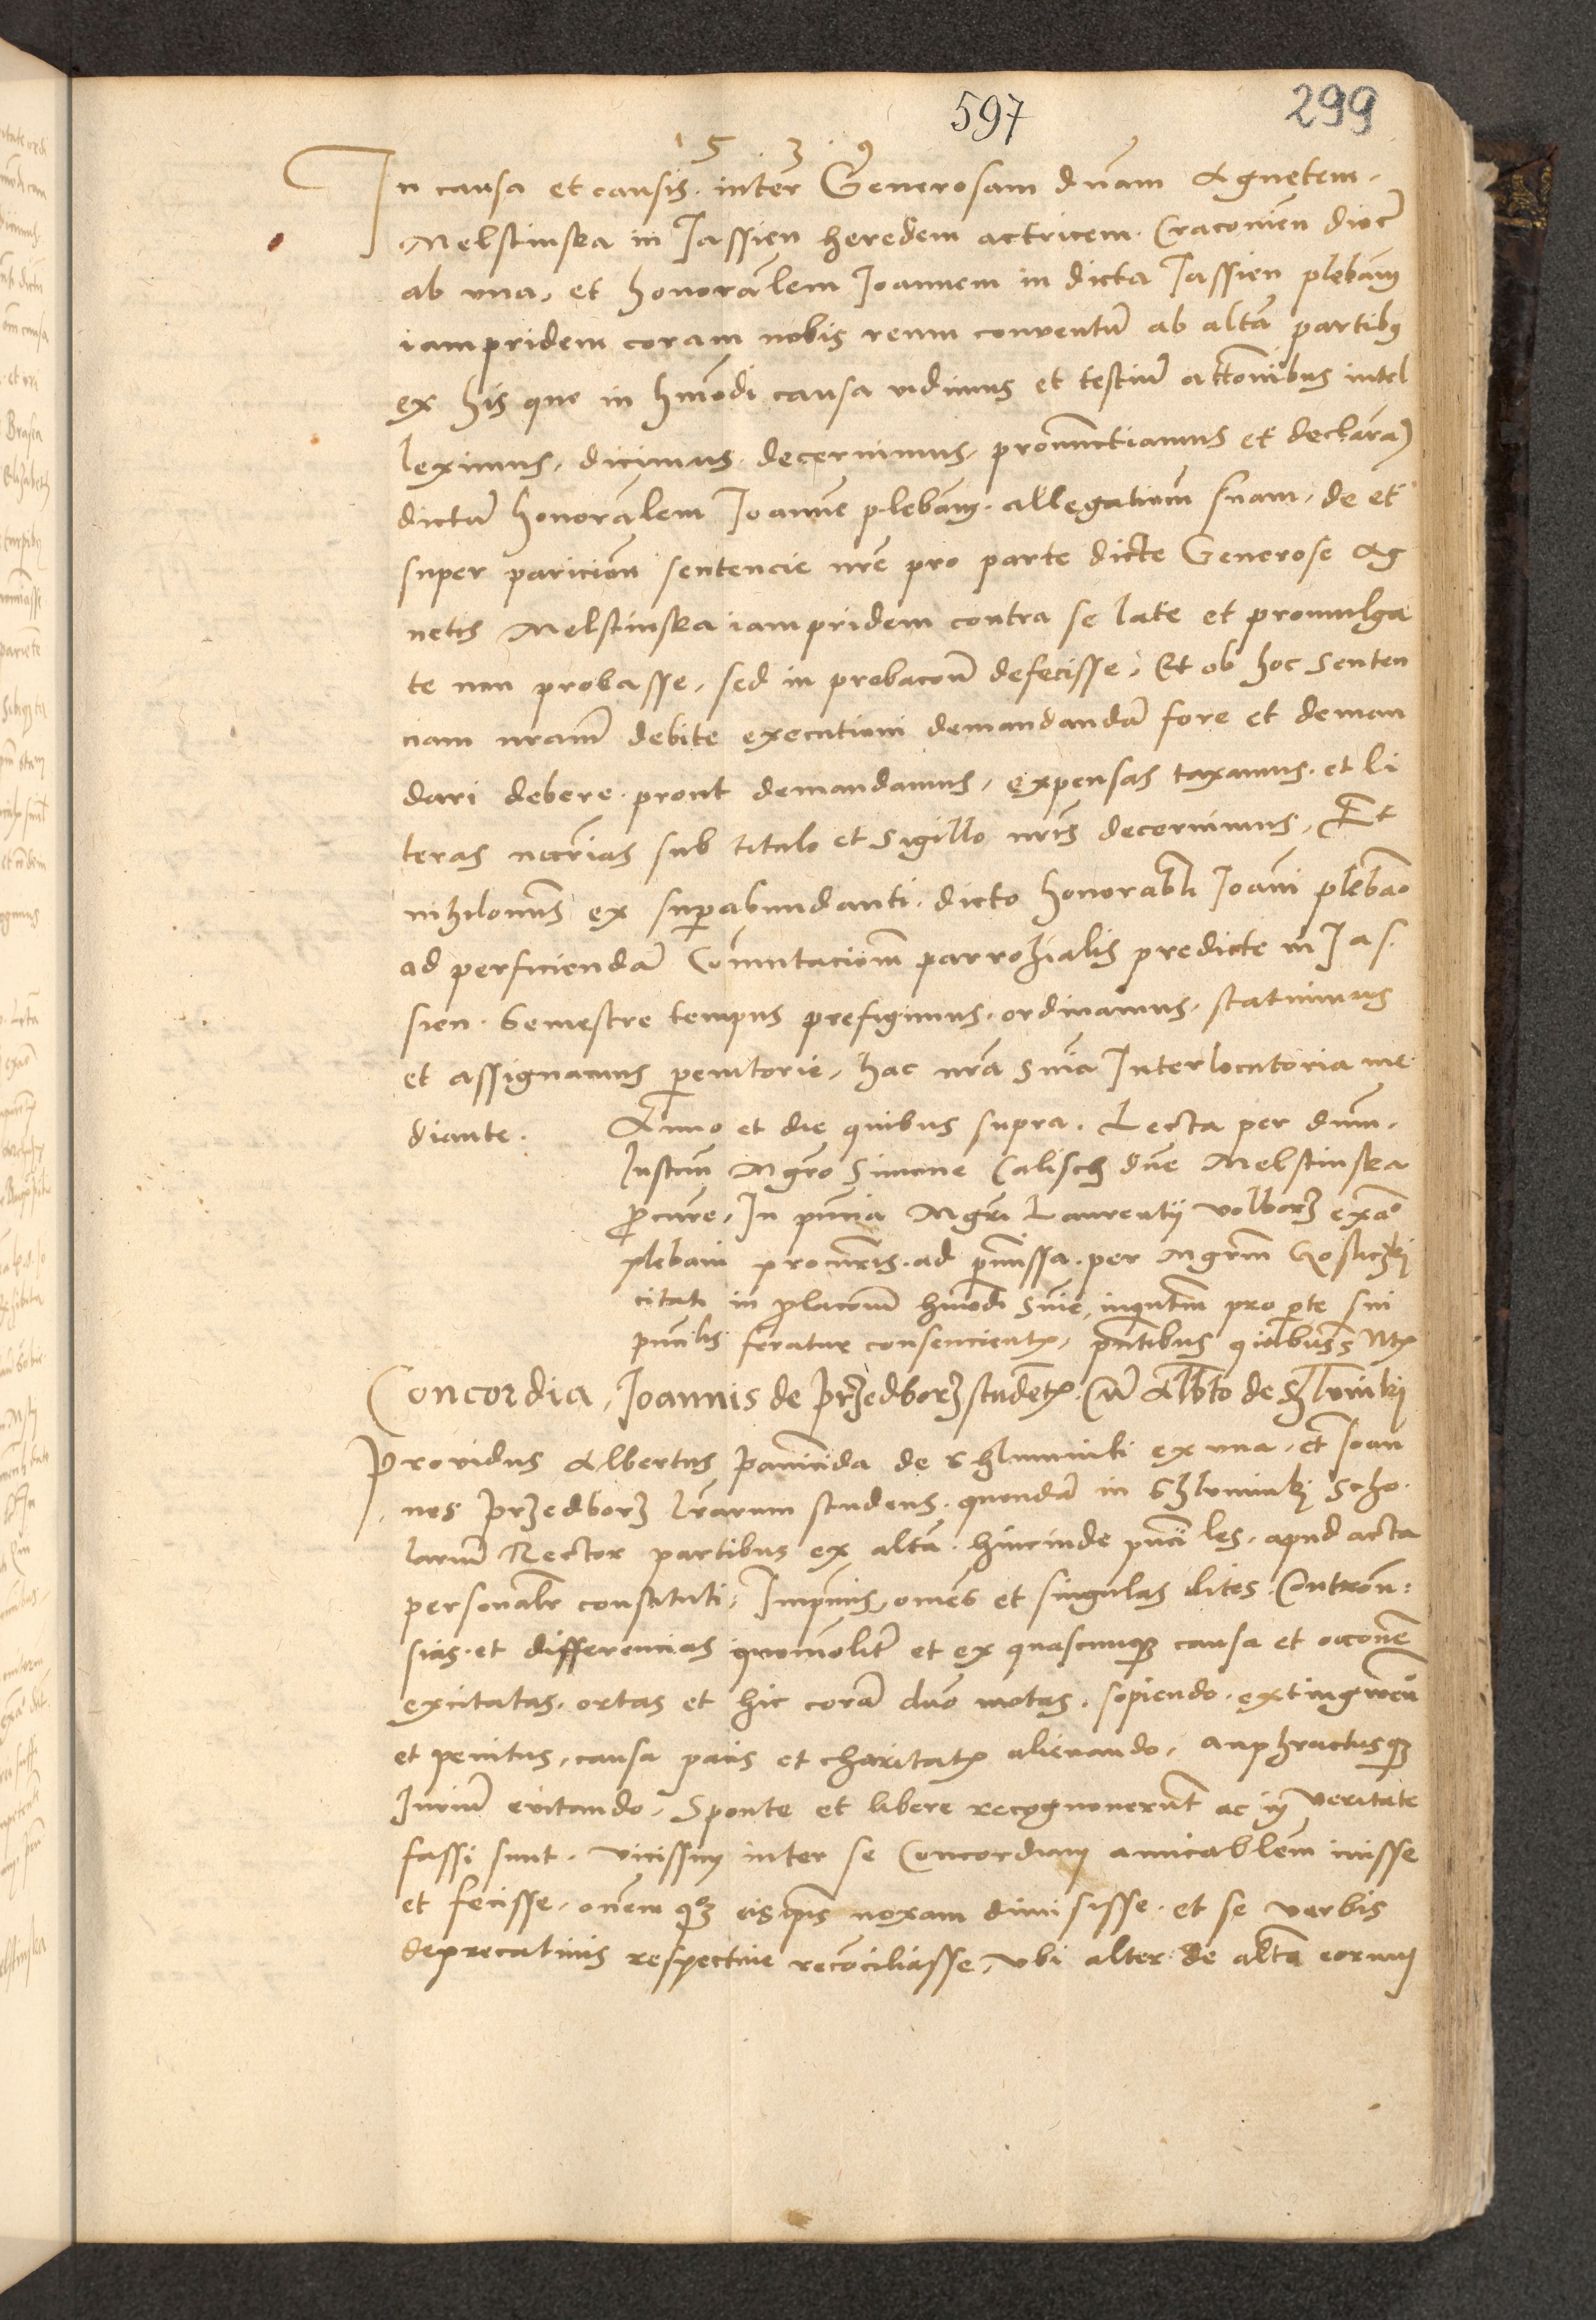 597
299
1 5 3 9
In causa et causis inter Generosam dnam Agnetem
Melstinska in Jassien heredem actricem Cracovien dioc
ab una, et honoralem Joannem in dicta Jassien plebanū
iampridem coram nobis reum conventū ab altā partibus
ex his que in hmodi causa vidimus et testium attōnibus intel
leximus, dicimus decernimus, pronunctiamus et declaram
dictū honoralem Joannē plebanū allegatiuam suam, de et
super paricioni sentencie nrē pro parte dicte Generose Ag
netis Melstinska iampridem contra se late et promulga
te non probasse, sed in probacoē defecisse, Et ob hoc senten
ciam nram debite executioni demandandā fore et deman
dari debere prout demandamus, expensas taxamus et li
teras necrias sub titulo et sigillo nris decernimus, Et
nihilomīs ex superabundanti dicto honorabli Joāni plebāo
ad perficiendā Comutacionm parrohialis predicte in Jas
sien Semestre tempus prefigimus, ordinamus, statuimus
et assignamus peremtorie, hac nra snīa Interlocutoria me
diante. Anno et die quibus supra. Lecta per dnm
Instan Mgro Simone Calisch dne Melstinska
procure, In pncia Mgri Laurentij Volborz exāo
plebani procuris ad pmissa per Mgrm
citati in prolacom hmodi snīe, inqntm pro pte sui
pncilis feratur consencientis, pntibus quibus s Ntis
Concordia, Joannis de Przedborz studētis Cū Albto de Szlvinki
Providus Albertus pannicida de Slumniki ex una, et Joan
nes Przedborz lrarum studens, quondā in Szlvmnikj Scho
larum Rector partibus ex altā hincinde pnciles, apud acta
personalr constituti, Imprimis omes et singulas lites Controu
sias et differencias quomolit et ex quascunque causa et occoē
excitatas, ortas et hic corā dno motas, sopiendo extingwen
et penitus, causa pacis et charitatis alienando, anphractusque
Iurium evitando, Sponte et libere recognoverūt ac in veritate
fassi sunt, vicissim inter se Concordiam amicablem inisse
et fecisse, onem qȝ eis noxam dimisisse et se verbis
deprecativis respective reconciliasse, Vbi alter de altā eorum